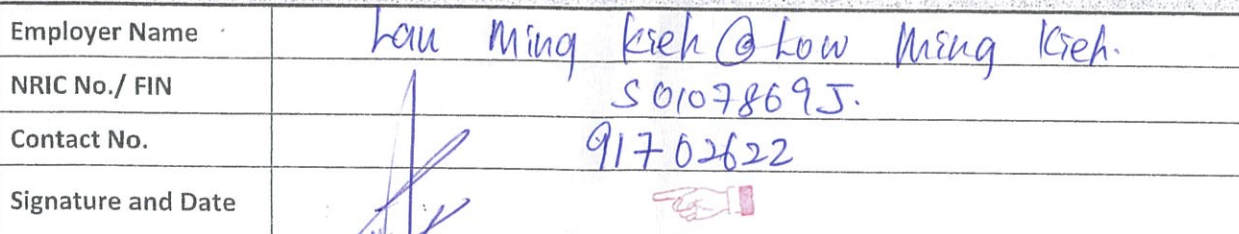 Employer Name Lau Ming Kieh @ Low Ming Kieh.
NRIC No./ FIN S0107869J.
Contact No. 91702622
Signature and Date